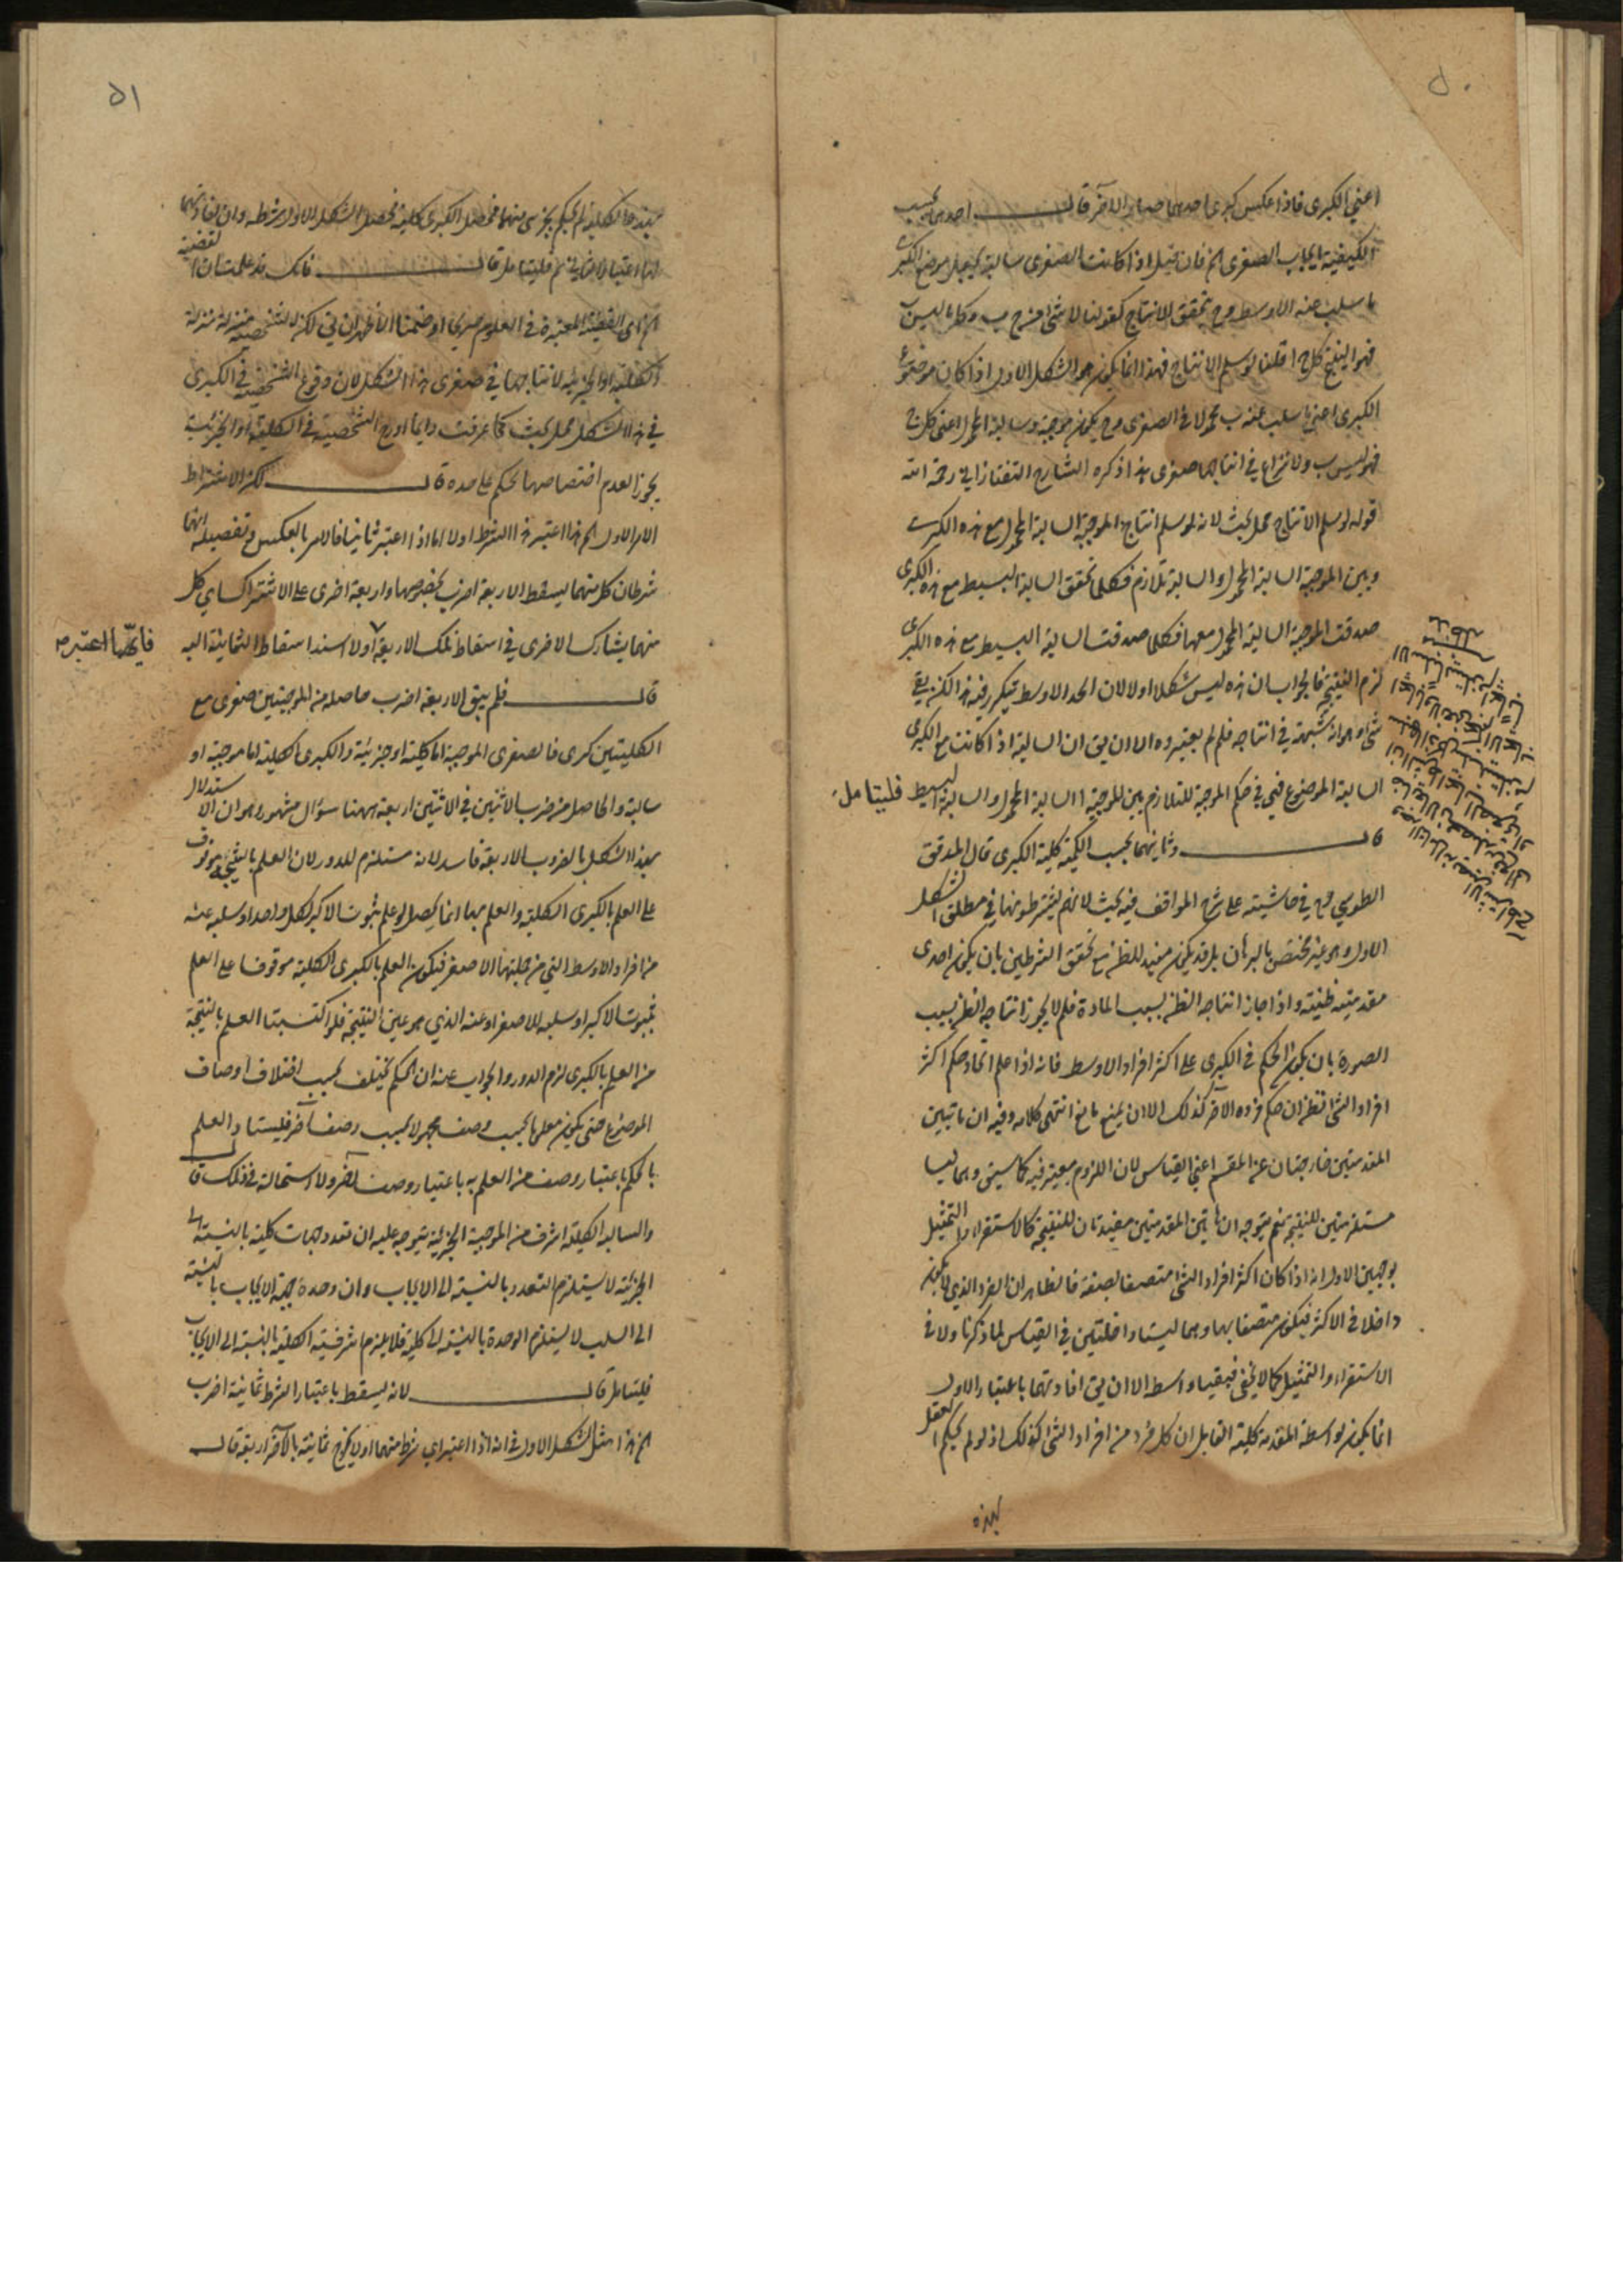 ٥٠
اعني الكبرى فاذا عكس كبرى احديهما صار الآخر قال احديهما بحسب
الكيفية ايجاب الصغرى الخ فان قيل اذا كانت الصغرى سالبة يجعل موضوع الكبرى
ما سلب عنه الاوسط وح يتحقق الانتاج كقولنا لا شئ من ج ب وكل ما ليس ب
فهو ا ينتج كل ج ا قلنا لو سلم الانتاج فهذا انما يكون هو الشكل الاول اذا كان موضوع
الكبرى اعني ما سلب عنه ب محمولا في الصغرى وح يكون موجبة سالبة المحمول اعني كل ج
فهو ليس ب ولا نزاع في انتاجها صغرى هذا ذكره الشارح التفتازاني رحمه الله
قوله لو سلم الانتاج محل بحث لانه لو سلم انتاج الموجبة السالبة المحمول مع هذه الكبرى
وبين الموجبة السالبة المحمول والسالبة تلازم فكلما تحقق السالبة البسيط مع هذه الكبرى
صدقت الموجبة السالبة المحمول معها فكلما صدقت السالبة البسيط مع هذه الكبرى
لزم النتيجة فالجواب ان هذه ليس شكلا اولا لان الحد الاوسط تيكرر فيه هذا لكن بقي
شئ وهو انه لا شبهة في انتاجه فلم لم يعتبروه الا ان يق ان السالبة اذا كانت مع الكبرى
السالبة الموضوع فهي في حكم الموجبة للتلازم بين الموجبة السالبة المحمول والسالبة البسيط فليتامل
قال وثانيهما بحسب الكمية كلية الكبرى قال المدقق
الطوسي في حاشيته على شرح المواقف فيه بحث لانهم يشترطونها في مطلق الشكل
الاول وهو غير مختص بالبرهان بل قد يكون مفيد للظن مع تحقق الشرطين بان يكون احدى
مقدمتيه ظنية واذا جاز انتاجه الظن بسبب المادة فلم لا يجوز انتاجه الظن بسبب
الصورة بان يكون الحكم في الكبرى على اكثر افراد الاوسط فانه اذا علم اتحاد حكم اكثر
افراد الشئ لظن ان حكم فرده الآخر كذلك الا ان يمنع مانع انتهى كلامه وفيه ان هاتين
المقدمتين خارجتان عن المقسم اعني القياس لان اللزوم معتبر فيه كما سبق وهما ليسا
مستلزمتين للنتيجة نعم يتوجه ان هاتين المقدمتين مفيدتان للنتيجة كالاستقراء والتمثيل
بوجهين الاول انه اذا كان اكثر افراد الشئ متصفا بصفة فالظاهر ان الفرد الذي لا يكون
داخلا في الاكثر فيكون متصفا بها وهما ليستا داخلتين في القياس لما ذكرنا ولا في
الاستقراء والتمثيل كما لا يخفى فبقيا واسطة الا ان يق افادتهما باعتبار الاول
انما يكون بواسطة المقدمة كلية القايل ان كل فرد من افراد الشئ كذلك اذ لو لم يحكم العقل
بهذه
٥١
بهذه الكلية لم يحكم بجزئي منها فحصل الكبرى كلية فحصل الشكل الاول بشرطه وان افادتهما
لها باعتبار الثاني فليتامل قال فانك قد علمت ان القضية
الخ اى القضية المعتبرة في العلوم صريحا او ضمنا الا ظهر ان يق لكن الشخصية منزلة منزلة
الكلية او الجزئية لانتاجها في صغرى هذا الشكل لان وقوع الشخصية في الكبرى
في هذا الشكل محل بحث كما عرفت دايما ادرج الشخصية في الكلية او الجزئية
يجوز لعدم اختصاصها بحكم على حده قال لكن الاشتراط
الامر الاول الخ هذا اعتبر هذا الشرط اولا اما اذا اعتبر ثانيا فالامر بالعكس وتفصيله انهما
شرطان كل منهما يسقط الاربعة اضرب بخصوصها واربعة اخرى على الاشتراك اي كل
منهما يشارك الاخرى في اسقاط تلك الاربعة اولا اسند اسقاط الثمانية اليه
فايهما اعتبر
قال فلم يبق الا اربعة اضرب حاصله من الموجبتين صغرى مع
الكليتين كبرى فالصغرى الموجبة اما كلية او جزئية والكبرى الكلية اما موجبة او
سالبة والحاصل من ضرب الاثنين في الاثنين اربعة ههنا سؤال مشهور وهو ان الاستدلال
بهذا الشكل بالضروب الاربعة فاسد لانه مستلزم للدور لان العلم بالنتيجة موقوف
على العلم بالكبرى الكلية والعلم بها انما يحصل لو علم ثبوت الاكبر لكل واحد او سلبه عنه
من افراد الاوسط التي من جملتها الاصغر فيكون العلم بالكبرى الكلية موقوفا على العلم
بثبوت الاكبر او سلبه للاصغر او عنه الذي هو عين النتيجة فلو اكتسبنا العلم بالنتيجة
من العلم بالكبرى لزم الدور والجواب عنه ان الحكم يختلف بحسب اختلاف اوصاف
الموضوع حتى يكون معلوما بحسب وصف مجهولا بحسب وصف آخر فليستفاد العلم
بالحكم باعتبار وصف من العلم به باعتبار وصف آخر ولا استحالة في ذلك قال
والسالبة الكلية اشرف من الموجبة الجزئية يتوجه عليه ان تعدد جهات كلية بالنسبة الى
الجزئية لا يستلزم التعدد بالنسبة الى الايجاب وان وحدة جهة الايجاب بالنسبة
الى السلب لا يستلزم الوحدة بالنسبة الى كلية فلا يلزم اشرفية الكلية بالنسبة الى الايجاب
فليتامل قال لانه يسقط باعتبار الشرط ثمانية اضرب
الخ هذا مثل الشكل الاول في انه اذا اعتبر اي شرط منهما اولا يخرج ثمانية بالآخر اربعة قال